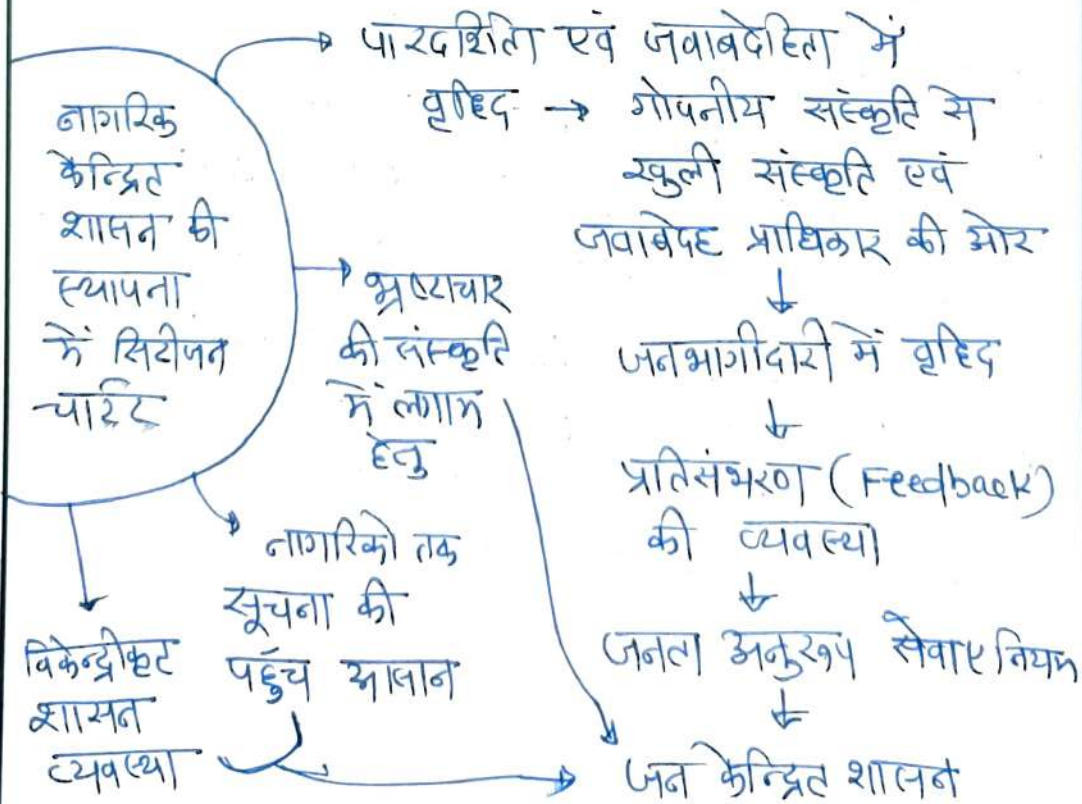 नागरिक
केन्द्रित
शासन की
स्थापना
में सिटीजन
चार्टर
पारदर्शिता एवं जवाबदेहिता में
वृद्धि → गोपनीय संस्कृति से
खुली संस्कृति एवं
जवाबेदह प्राधिकार की ओर
↓
जनभागीदारी में वृद्धि
↓
प्रतिसंभरण (Feedback)
की व्यवस्था
↓
जनता अनुरूप सेवाए नियम
↓
जन केन्द्रित शासन
भ्रष्टाचार
की संस्कृति
में लगाम
हेतु
नागरिको तक
सूचना की
पहुँच आसान
विकेन्द्रीकृत
शासन
व्यवस्था